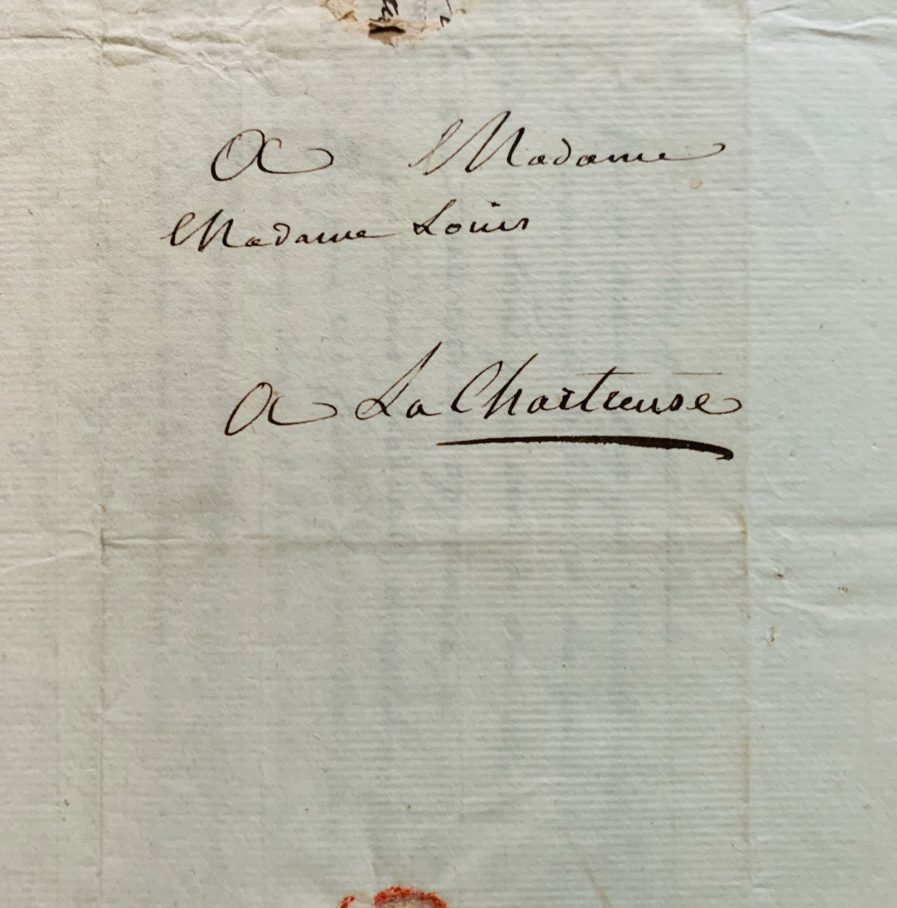 A Madame
Madame Louis
A La Chartreuse